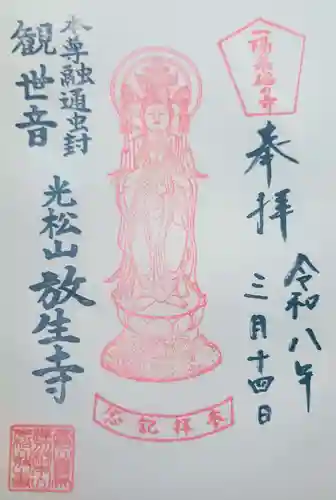 奉拝
令和八年
三月十四日
本尊融通虫封
観世音
光松山放生寺
奉拝記念